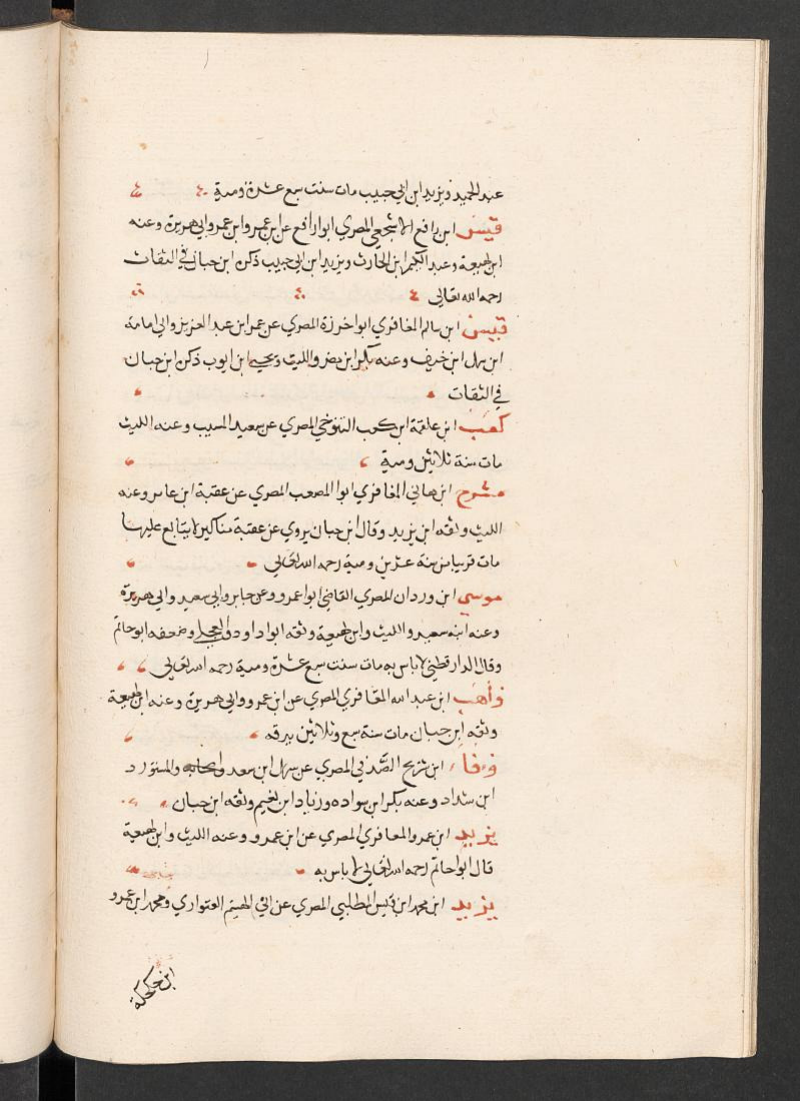 عبد الحميد ويزيد ابن ابي حبيب مات سنت سبع عشرة ومية
قيس ابن رافع الاشجعي المصري ابوا رافع عن ابن عمرو ابن عمرو وابي هريرة وعنه
ابن لهيعة وعبد الكريم ابن الحارث ويزيد ابن ابي حبيب ذكره ابن حبان في الثقات
رحمه الله تعالى
قيس ابن سالم المغافري ابوا خرزة المصري عن عمر ابن عبد العزيز وابي امامة
ابن سهل ابن حنيف وعنه بكر ابن مضر والليث ويحيى ابن ايوب ذكره ابن حبان
في الثقات
كعب ابن علقمة ابن كعب التنوخي المصري عن سعيد المسيب وعنه الليث
مات سنة ثلاثين ومية
مشرح ابن هاني المغافري ابوا المصعب المصري عن عقبة ابن عامر وعنه
الليث وثقه ابن يزيد وقال ابن حبان يروي عن عقبة مناكير لا يتابع عليها
مات قريبا من سنة عشرين ومية رحمه الله تعالى
موسى ابن وردان المصري القاضي ابوا عمرو وعن جابر وابي سعيد وابي هريرة
وعنه ابنه سعيد والليث وابن لهيعة وثقه ابوا داود والعجلي وضعفه ابو حاتم
وقال الدارقطني لا باس به مات سنت سبع عشرة ومية رحمه الله تعالى
واهب ابن عبد الله المغافري المصري عن ابن عمرو وابي هريرة وعنه ابن لهيعة
وثقه ابن حبان مات سنة سبع وثلاثين ببرقه
وفاء ابن شريح الصدفي المصري عن سهل ابن سعد والمستورد
ابن شداد وعنه بكر ابن سواده وزياد ابن نعيم وثقه ابن حبان
يزيد ابن عمرو المعافري المصري عن ابن عمرو وعنه الليث وابن لهيعة
قال ابوا حاتم رحمه الله تعالى لا باس به
يزيد ابن محمد ابن قيس المطلبي المصري عن ابي الهيثم العتواري ومحمد ابن عمرو
ابن حلحلة